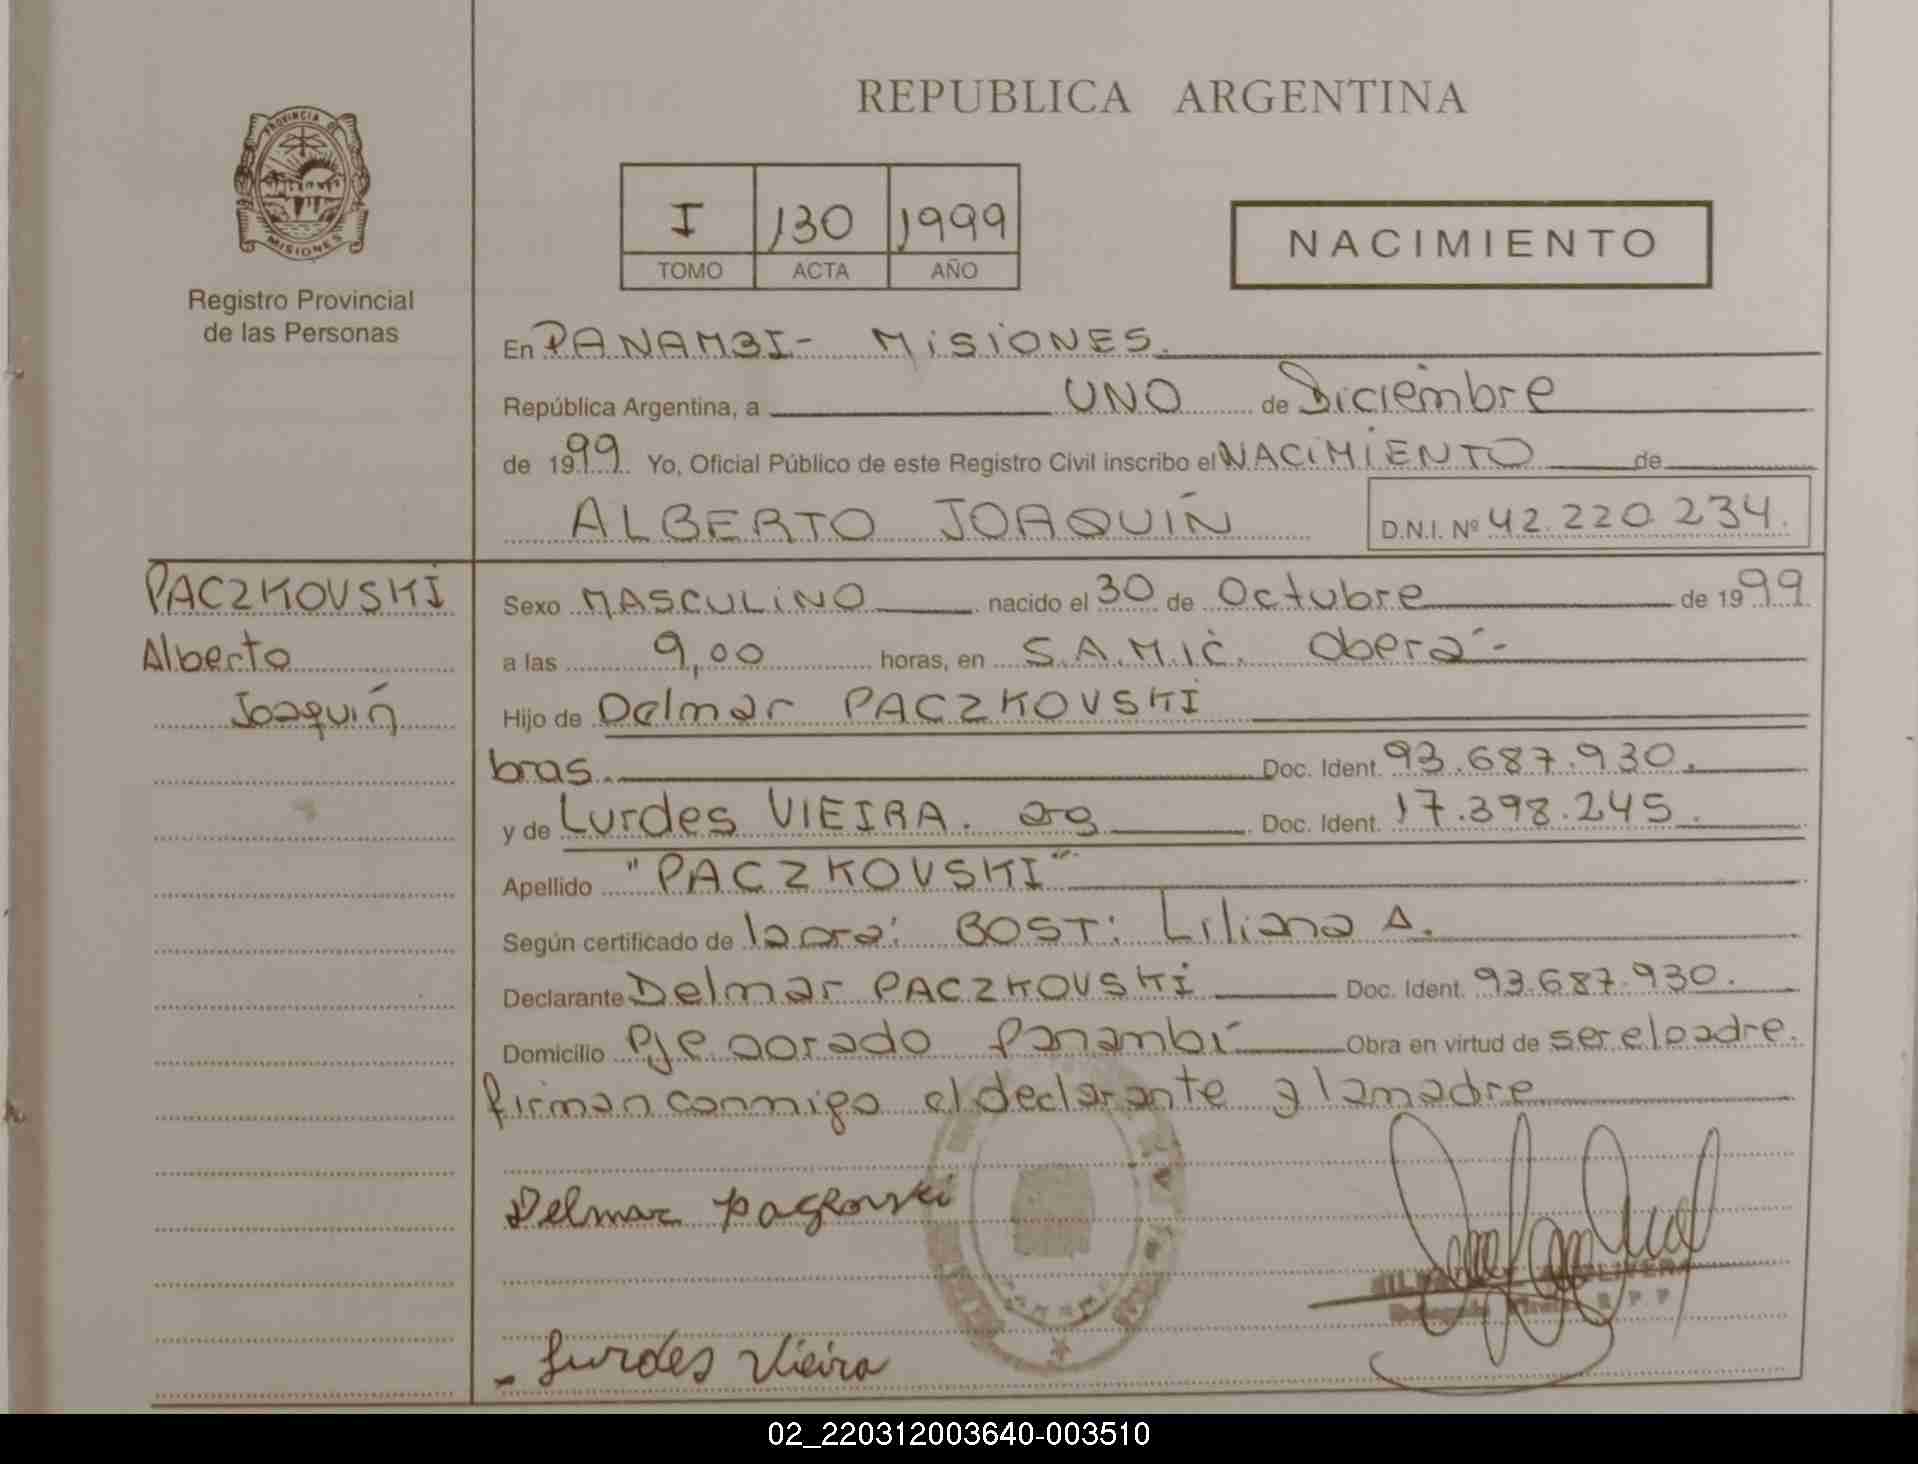 REPUBLICA ARGENTINA
PROVINCIA DE
MISIONES
Registro Provincial
de las Personas
I 130 1999
TOMO ACTA AÑO
NACIMIENTO
En PANAMBI- MISIONES.
República Argentina, a UNO de Diciembre
de 1999. Yo, Oficial Público de este Registro Civil inscribo el NACIMIENTO de
ALBERTO JOAQUÍN D.N.I. Nº 42.220.234.
PACZKOVSKI
Alberto
Joaquín
Sexo MASCULINO nacido el 30 de Octubre de 1999
a las 9,00 horas, en S.A.M.I.C. Oberá-
Hijo de Delmar PACZKOVSKI
bras. Doc. Ident. 93.687.930.
y de Lurdes VIEIRA. arg Doc. Ident. 17.398.245.
Apellido "PACZKOVSKI"
Según certificado de la Dra: BOST: Liliana A.
Declarante Delmar PACZKOVSKI Doc. Ident. 93.687.930.
Domicilio Pje Dorado Panambí Obra en virtud de ser el padre.
firman conmigo el declarante y la madre
Delmar
Lurdes Vieira
02_220312003640-003510